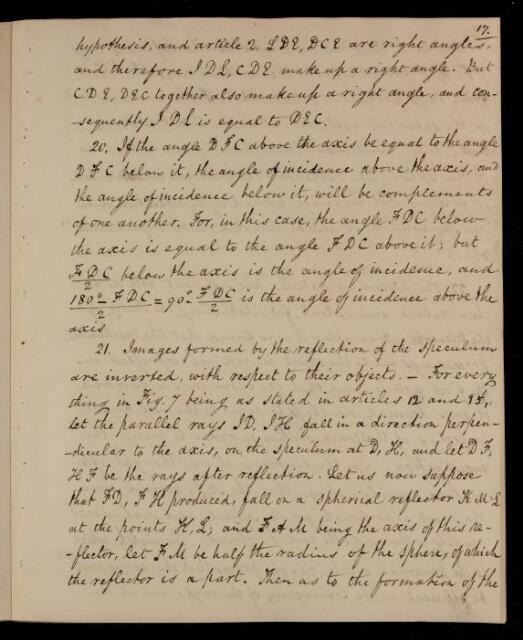 17.
hypothesis, and article 2, LDE, DCE are right angles,
and therefore IDL, CDE make up a right angle. But
CDE, DEC together also make up a right angle, and con-
-sequently IDL is equal to DEC.
20. If the angle DFC above the axis be equal to the angle
DFC below it, the angle of incidence above the axis, and
the angle of incidence below it, will be complements
of one another. For, in this case, the angle FDC below
the axis is equal to the angle FDC above it; but
FDC/2 below the axis is the angle of incidence, and
180° - FDC/2 = 90° - FDC/2 is the angle of incidence above the
axis
21. Images formed by the reflection of the speculum
are inverted, with respect to their objects. — For every
thing in Fig. 7 being as stated in articles 12 and 18,
let the parallel rays ID, IH fall in a direction perpen-
-dicular to the axis, on the speculum at D, H, and let DF,
HF be the rays after reflection. Let us now suppose
that FD, FH produced, fall on a spherical reflector KML
at the points K, L; and FAM being the axis of this re-
-flector, let FM be half the radius of the sphere, of which
the reflector is a part. Then as to the formation of the